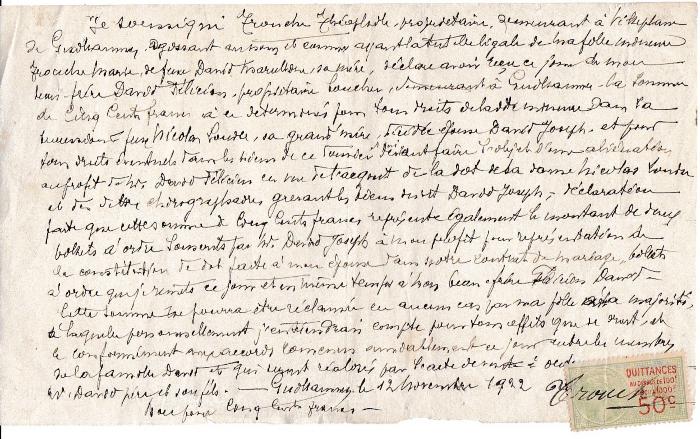 Je soussigné Tronche Théophile, propriétaire, demeurant à
de agissant au nom et comme ayant la tutelle légale de ma fille mineure
Tronche Marie, de feue David sa mère, déclare avoir reçu ce jour de mon
beau-frère David Félicien, propriétaire demeurant à la somme
de Cinq Cents francs à ce déterminés pour tous droits de ladite mineure dans la
succession feue Nicolas Louise, sa grand'mère, épouse David Joseph, et pour
tous droits éventuels dans les biens de ce dernier devant faire l'objet d'une aliénation
au profit de Mr. David Félicien en vue de la dot de la dame Nicolas Louise
et des dettes chirographaires grevant les biens David Joseph, - déclaration
faite que cette somme de Cinq Cents francs représente également le montant de deux
billets à ordre souscrits par Mr. David Joseph à mon profit pour représentation de
la constitution de dot faite à mon épouse dans notre contrat de mariage, billets
à ordre que je remets ce jour et en même temps à mon beau-frère Félicien David
Cette somme ne pourra être réclamée en aucun cas par ma fille à sa majorité,
à laquelle personnellement j'en tiendrai compte pour tous effets que de droit, et
le conformément aux accords convenus ce jour entre les membres
de la famille David et qui seront réalisés par
David père et son fils. - le 12 Novembre 1922
Bon pour Cinq Cents francs -
Tronche
QUITTANCES
50c